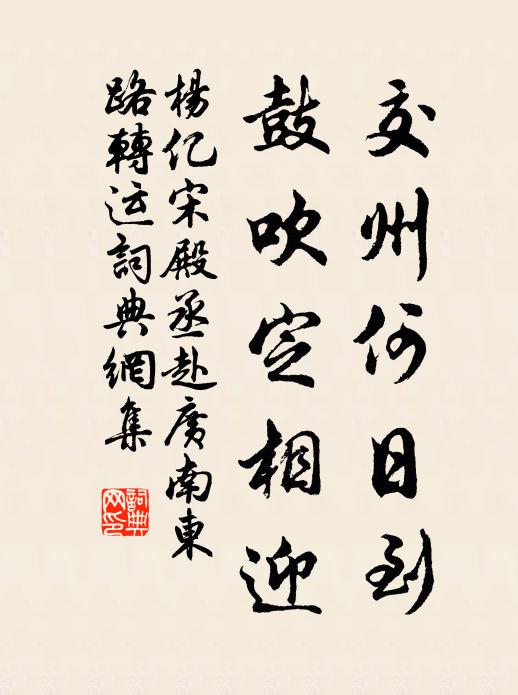 交州何日到
鼓吹定相迎
楊亿宋殿丞赴廣南東
路轉运詞典網集
詞典网印